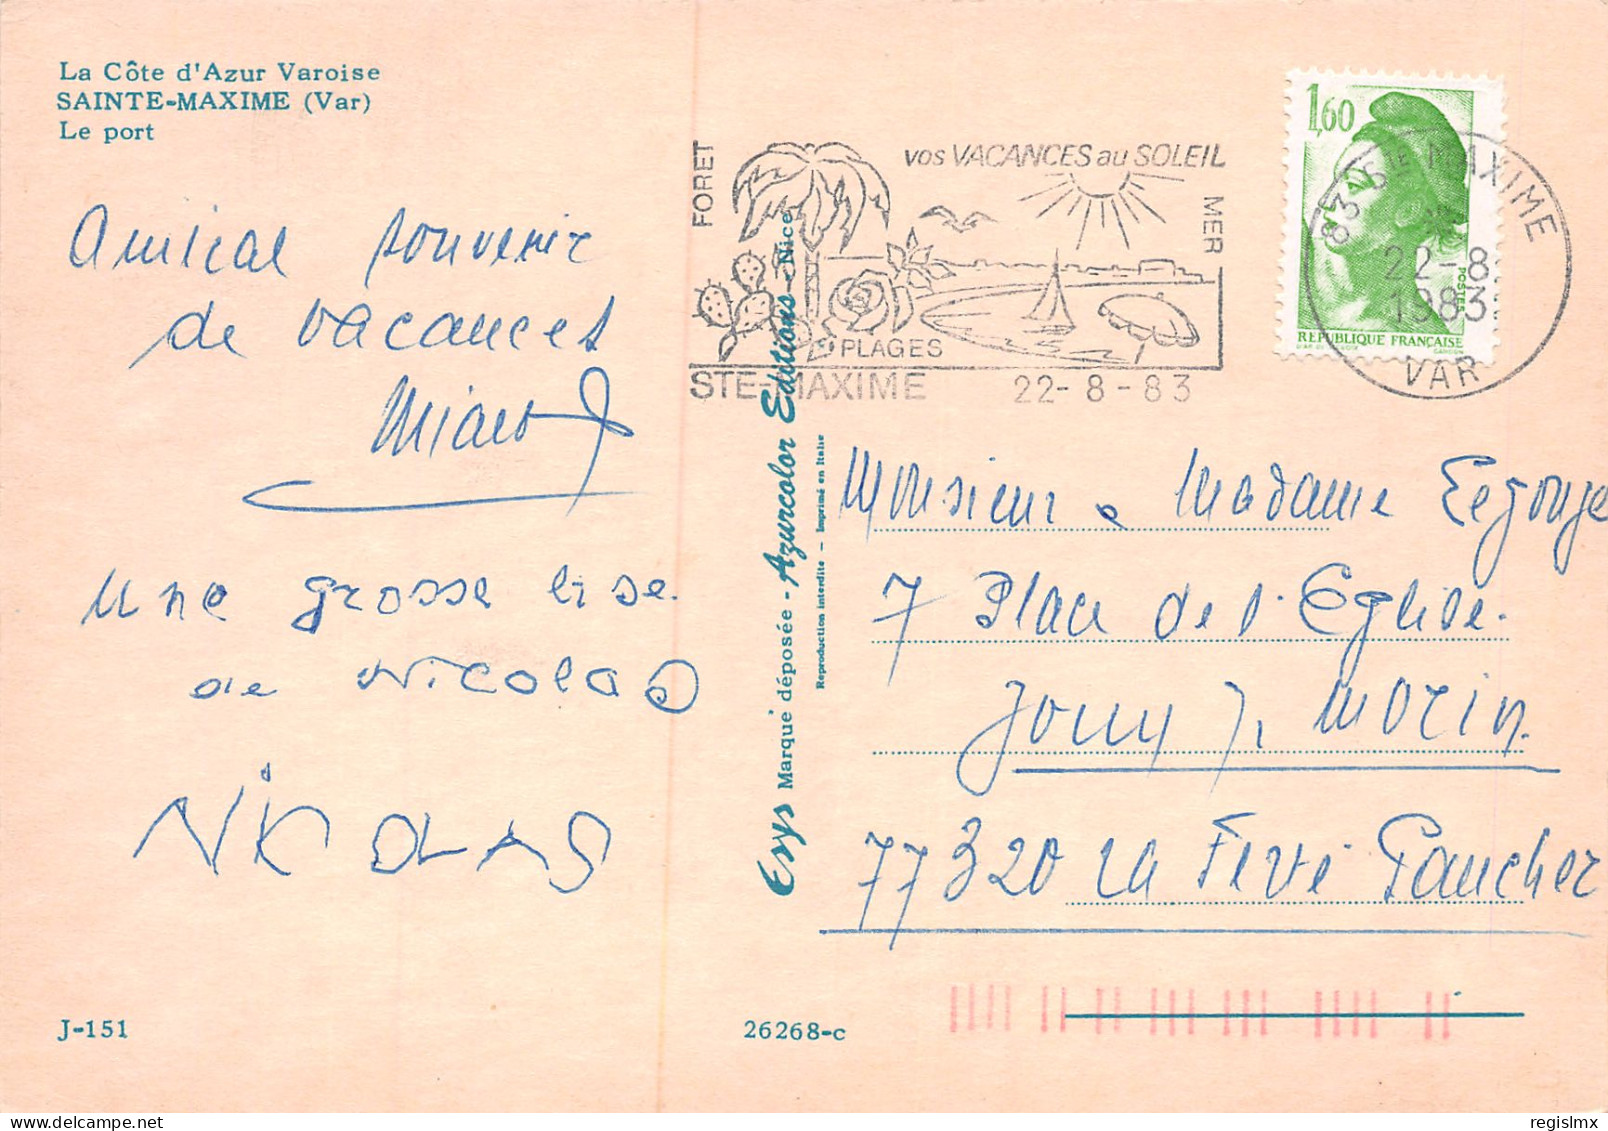 La Côte d'Azur Varoise
SAINTE-MAXIME (Var)
Le port
Amical souvenir
de vacances
une grosse bise
de Nicolas
NicOLAS
J-151
26268-c
Erys Marque déposée - Azurcolor Editions - Nice
Reproduction interdite — Imprimé en Italie
FORET
VOS VACANCES au SOLEIL
MER
PLAGES
STE-MAXIME 22-8-83
1,60
POSTES
REPUBLIQUE FRANÇAISE
83 STE MAXIME
22-8
1983
VAR
Monsieur e Madame
7 Place de l'Eglise.
Jouy s, Morin
77320 La Ferté Gaucher
regislmx